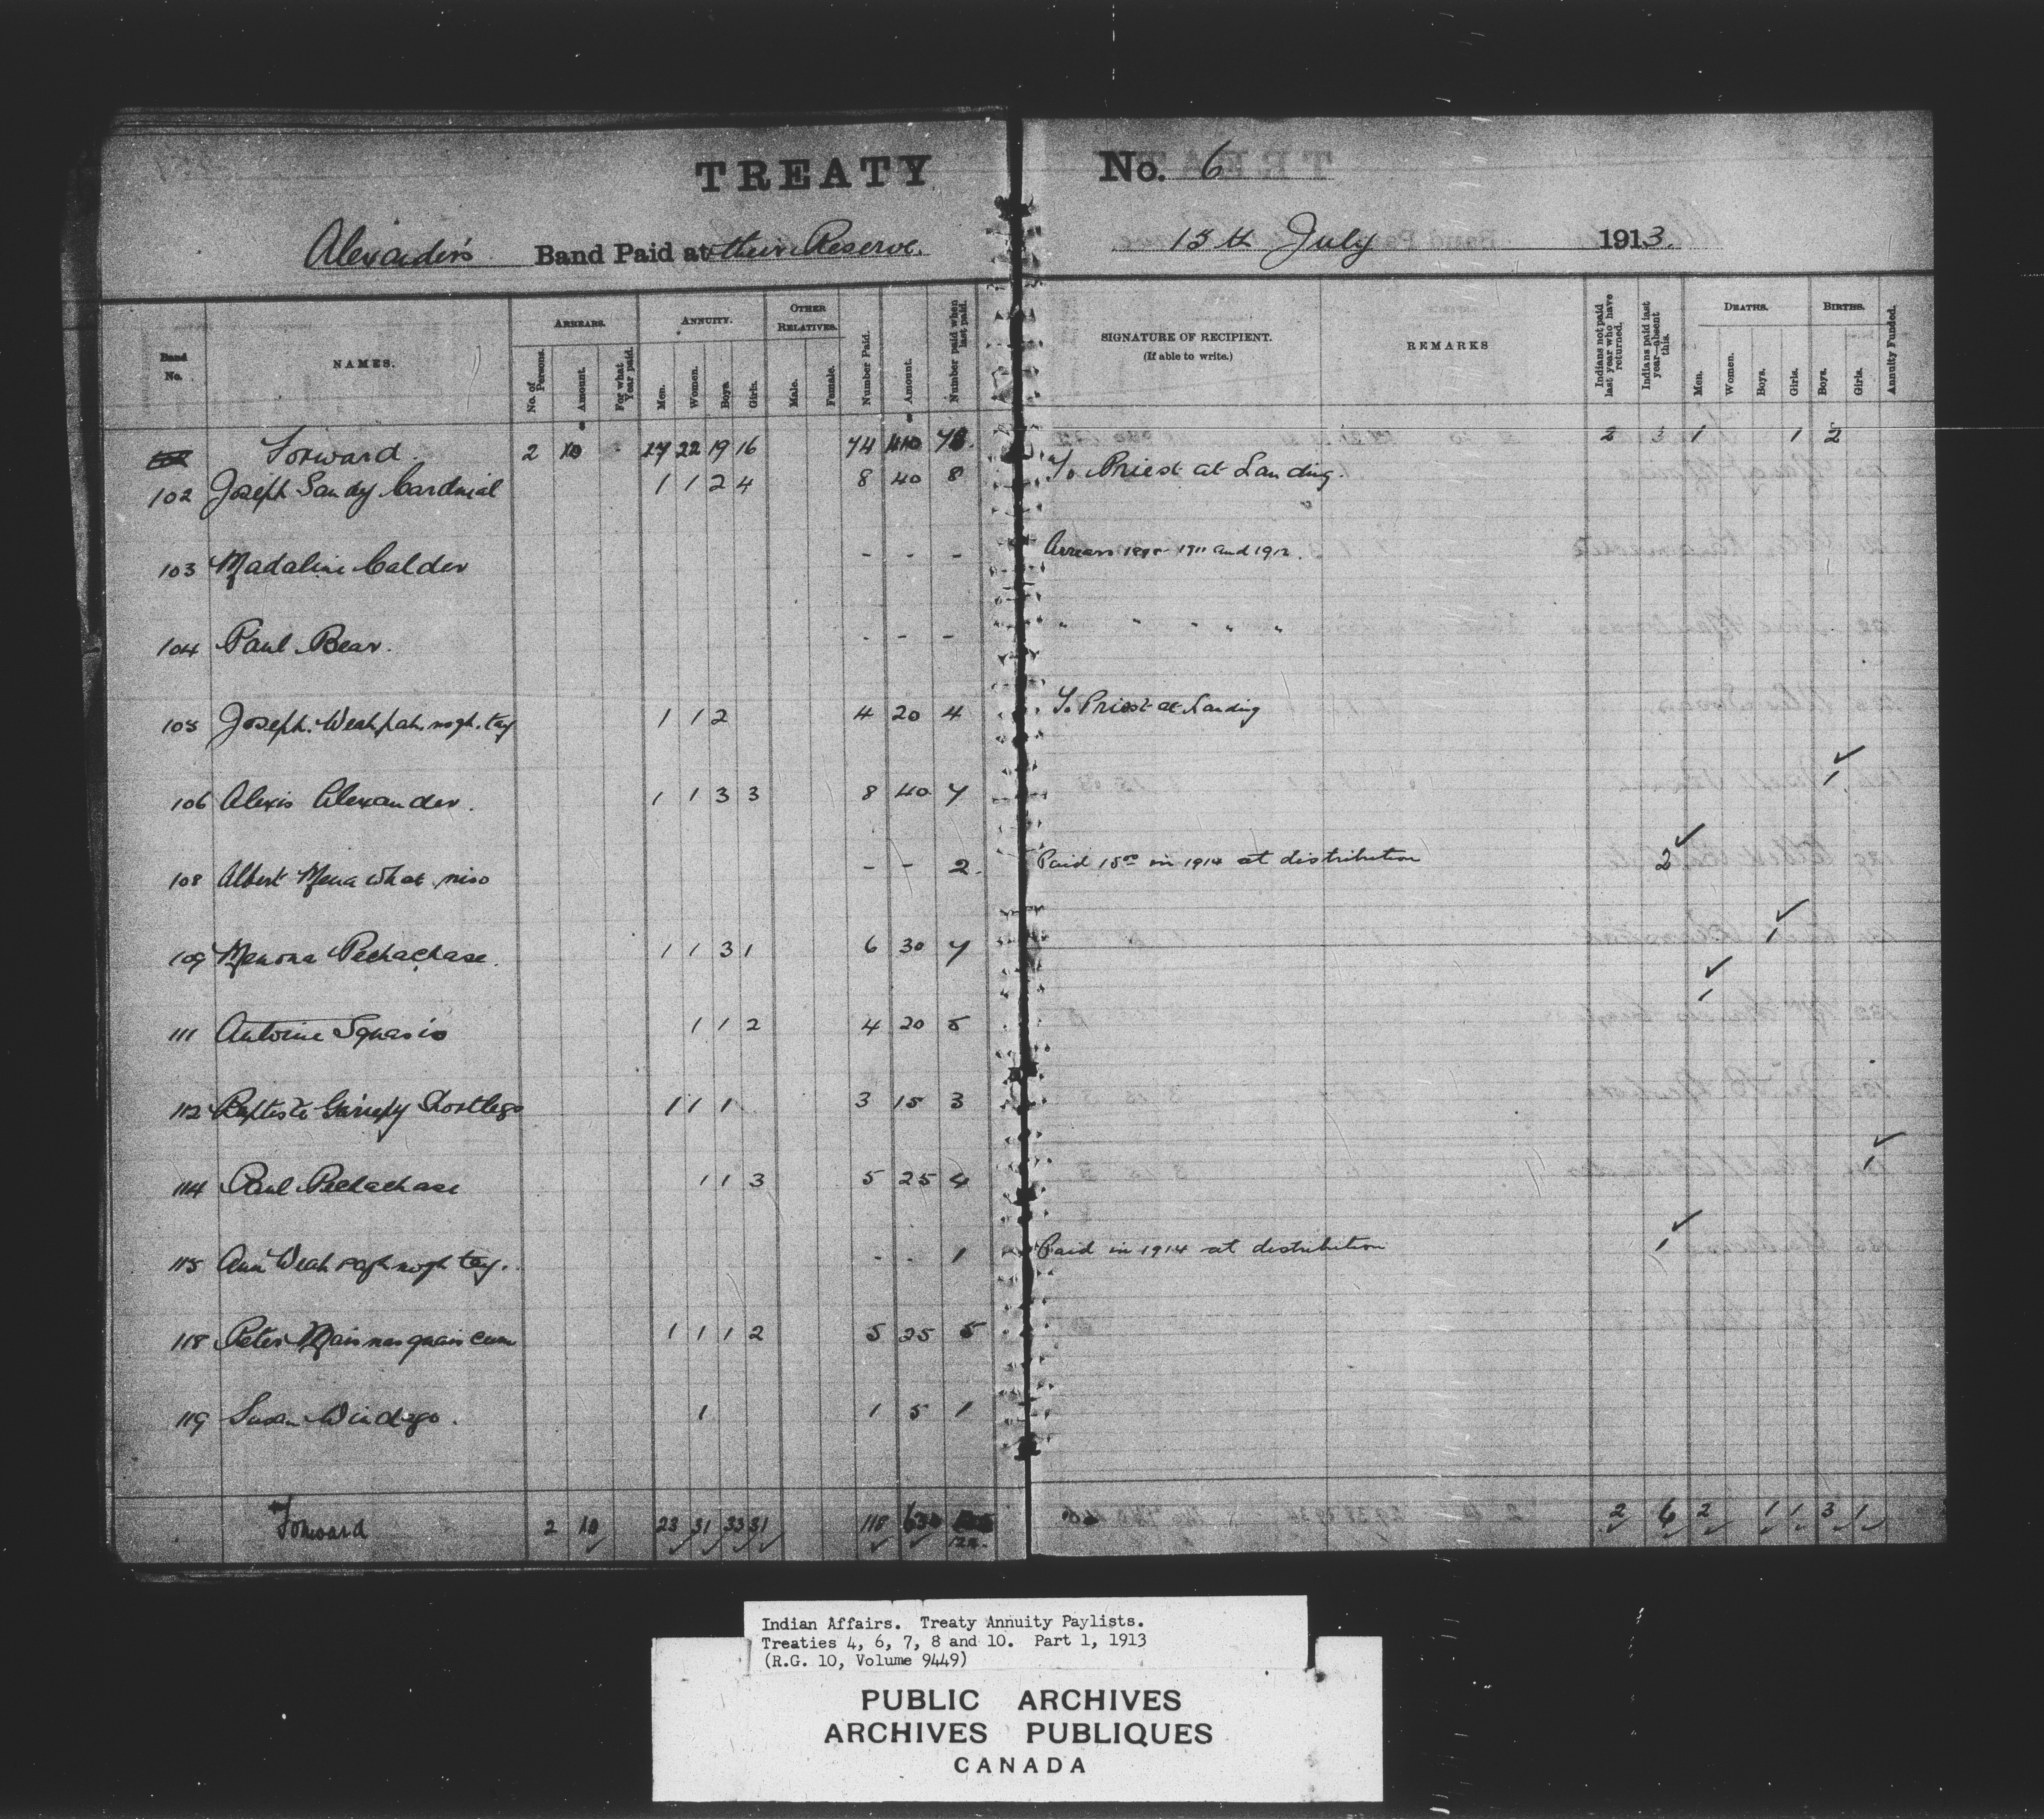 TREATY No. 6
Alexander's Band Paid at their Reserve. 15th July 1913.
Band No. NAMES. ARREARS. No. of Persons. Amount. For what Year paid. ANNUITY. Men. Women. Boys. Girls. OTHER RELATIVES. Male. Female. Number Paid. Amount. Number paid when last paid. SIGNATURE OF RECIPIENT. (If able to write.) REMARKS Indians not paid last year who have returned. Indians paid last year—absent this. DEATHS. Men. Women. Boys. Girls. BIRTHS. Boys. Girls. Annuity Funded.
Forward. 2 10 17 22 19 16 74 410 78. 2 3 1 1 2
102 Joseph Sandy Cardinal 1 1 2 4 8 40 8 To Priest at Landing.
103 Madaline Calder - - - Arrears 1911 and 1912.
104 Paul Bear. - - - " " " " "
105 Joseph. Weahpah.nogh.tay 1 1 2 4 20 4 To Priest at Landing
106 Alexis Alexander. 1 1 3 3 8 40 7 1
108 Albert Mena what niso - - 2. Paid 15.00 in 1914 at distribution 2
109 Menona Pechachase. 1 1 3 1 6 30 7 1
111 Antoine Squasis 1 1 2 4 20 5 1
112 Baptiste Gariepy Shortlegs 1 1 1 3 15 3
114 Paul Pechachase 1 1 3 5 25 4 1
115 Ann Weah pah nogh tay. - - 1 Paid in 1914 at distribution 1
118 Peter 1 1 1 2 5 25 5
119 Susan Windego. 1 1 5 1
Forward 2 10 23 31 33 31 118 630 122. 2 6 2 1 1 3 1
Indian Affairs. Treaty Annuity Paylists.
Treaties 4, 6, 7, 8 and 10. Part 1, 1913
(R.G. 10, Volume 9449)
PUBLIC ARCHIVES
ARCHIVES PUBLIQUES
CANADA